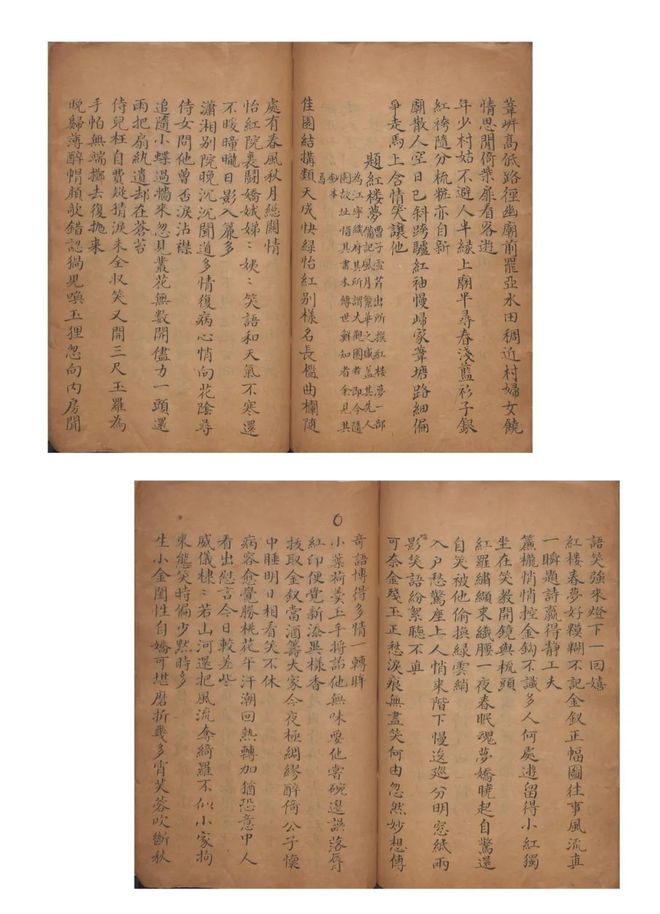 葦岍高低路徑幽廟前罷亞水田稠近村婦女饒
情思閒倚柴扉看客遊
年少村姑不避人半緣上廟半尋春淺藍衫子銀
紅袴隨分梳粧亦自新
廟散人空日已斜跨驢紅袖慢歸家葦塘路細偏
爭走馬上含情笑讓他
題紅樓夢
曹子雪芹出所撰紅樓夢一部
備記風月繁華之盛蓋其先人
為江寧織府其所謂大觀園者即今隨
園故址惜其書未傳世鮮知者余見其
鈔本
焉
佳園結搆類天成快綠怡紅別樣名長檻曲欄隨
處有春風秋月總關情
怡紅院裏鬪嬌娥娣娣姨姨笑語和天氣不寒還
不暖曈曨日影入簾多
瀟湘別院晚沉沉聞道多情復病心悄向花陰尋
侍女問他曾否淚沾襟
追隨小蝶過墻來忽見叢花無數開儘力一頭還
兩把扇紈遺却在蒼苔
侍兒枉自費疑猜淚未全收笑又開三尺玉羅為
手帕無端擲去復拋來
晚歸薄醉帽顏欹錯認猧兒喚玉狸忽向內房聞
語笑強來燈下一回嬉
紅樓春夢好模糊不記金釵正幅圖往事風流真
一瞬題詩贏得靜工夫
簾櫳悄悄控金鈎不識多人何處遊留得小紅獨
坐在笑教開鏡與梳頭
紅羅繡纈束纖腰一夜春眠魂夢嬌曉起自驚還
自笑被他偷換綠雲綃
入戶愁驚座上人悄來階下慢逡巡分明窓紙兩
影笑語紛絮聽不真
可奈金殘玉正愁淚痕無盡笑何由忽然妙想傳
奇語博得多情一轉眸
小葉荷羹玉手將詒他無味要他嘗碗邊誤落唇
紅印便覺新添異樣香
拔取金釵當酒籌大家今夜極綢繆醉倚公子懷
中睡明日相看笑不休
病容愈覺勝桃花午汗潮回熱轉加猶恐意中人
看出慰言今日較差些
威儀棣棣若山河還把風流奪綺羅不似小家拘
束態笑時偏少默時多
生小金閨性自嬌可堪磨折幾多宵芙蓉吹斷秋